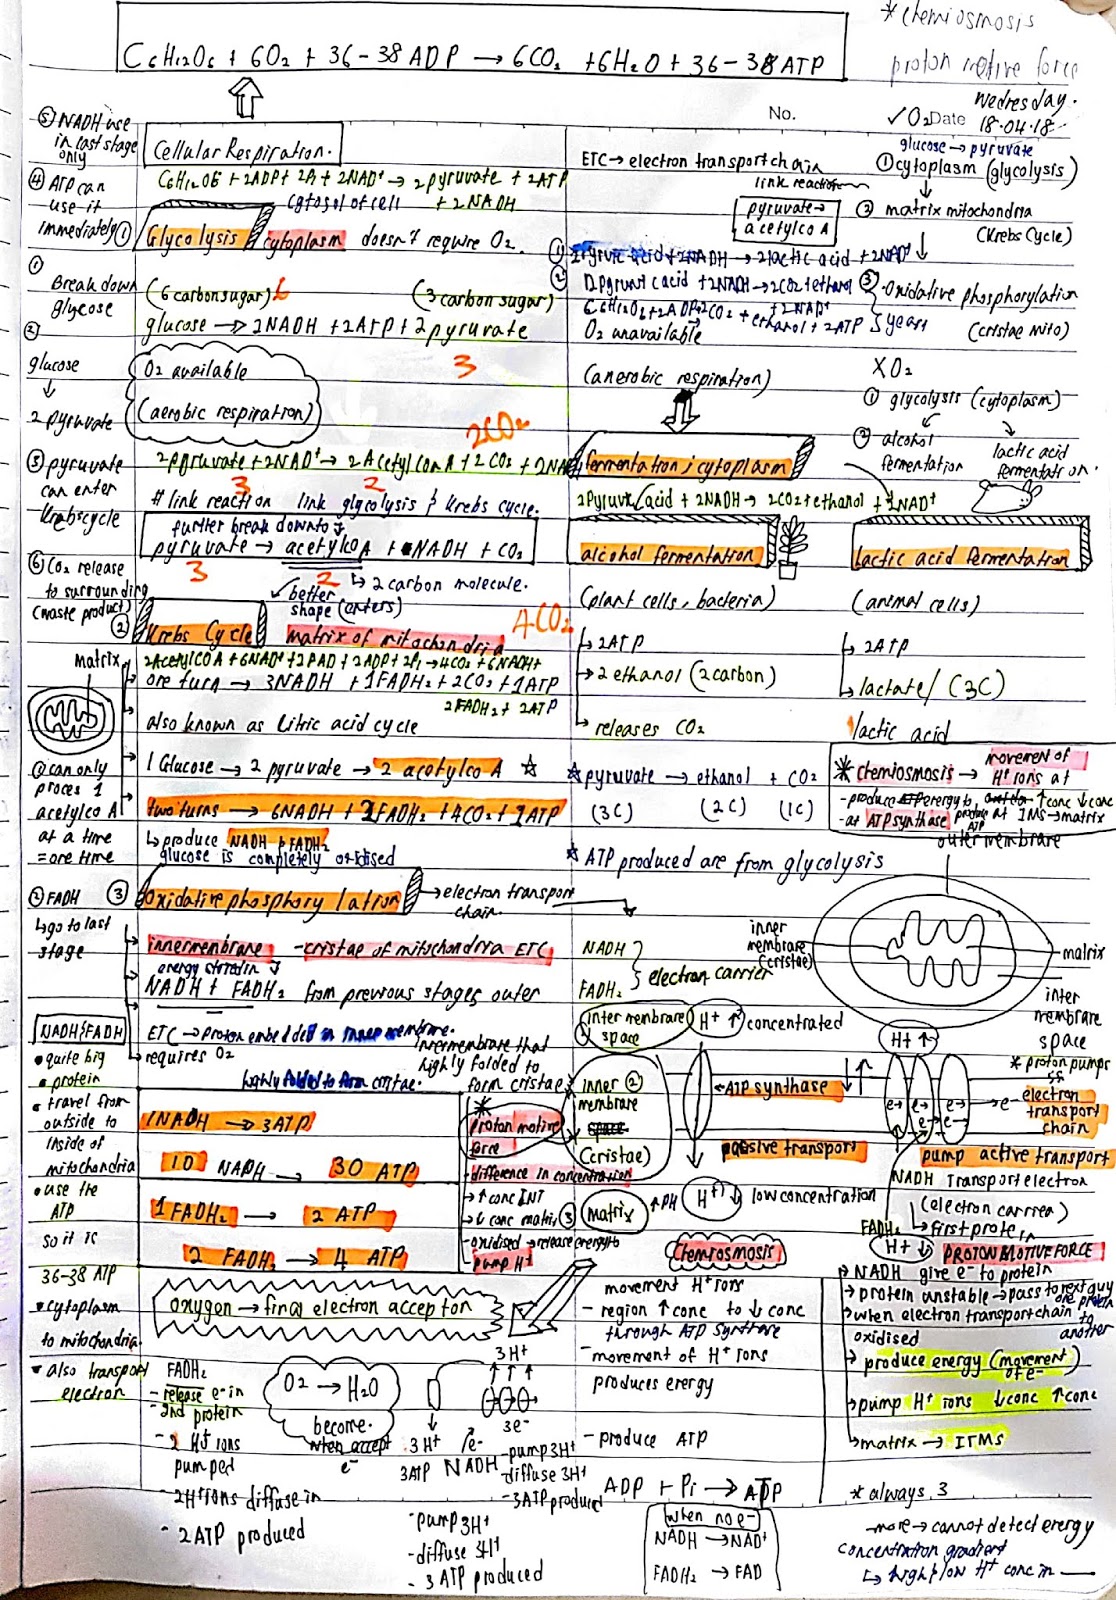 * chemiosmosis
proton motive force
C6H12O6 + 6O2 + 36-38 ADP → 6CO2 + 6H2O + 36-38 ATP
Wednesday.
No.
✓ O2 Date 18.04.18
⑤ NADH use
in last stage
only
Cellular Respiration.
④ ATP can
use it
immediately
C6H12O6 + 2ADP + 2Pi + 2NAD+ → 2 pyruvate + 2ATP
cytosol of cell + 2NADH
① Glycolysis cytoplasm doesn't require O2.
① Break down
glucose
(6 carbon sugar) 6 (3 carbon sugar)
glucose → 2NADH + 2ATP + 2 pyruvate
3
②
glucose
↓
2 pyruvate
O2 available
(aerobic respiration)
2CO2
③ pyruvate
can enter
krebs cycle
2 pyruvate + 2NAD+ → 2 Acetyl CoA + 2 CO2 + 2NADH
3 2
# link reaction link glycolysis & krebs cycle.
further break down to
pyruvate → acetyl co A + NADH + CO2
3 2 ↳ 2 carbon molecule.
⑥ CO2 release
to surrounding
(waste product)
better
shape (enters)
4CO2
② Krebs Cycle matrix of mitochondria
2Acetyl CO A + 6NAD+ + 2FAD + 2ADP + 2Pi → 4CO2 + 6NADH +
2FADH2 + 2ATP
matrix
one turn → 3NADH + 1FADH2 + 2CO2 + 1ATP
also known as Citric acid cycle
1 Glucose → 2 pyruvate → 2 acetyl co A ☆
two turns → 6NADH + 2FADH2 + 4CO2 + 2ATP
↳ produce NADH & FADH2
glucose is completely oxidised
① can only
proces 1
acetyl co A
at a time
= one time
② FADH
↳ go to last
stage
③ Oxidative phosphorylation → electron transport
chain.
inner membrane - cristae of mitochondria ETC
energy stored in
NADH + FADH2 from previous stages outer
ETC → protein embedded in inner membrane.
innermembrane that
highly folded to
form cristae
requires O2
highly folded to form cristae.
NADH & FADH
• quite big
• protein
• travel from
outside to
inside of
mitochondria
• use the
ATP
so it is
36-38 ATP
• cytoplasm
to mitochondria.
• also transport
electron
1NADH → 3ATP
10 NADH → 30 ATP
1 FADH2 → 2 ATP
2 FADH2 → 4 ATP
*
proton motive
force
- difference in concentration
→ ↑ conc INT
→ ↓ conc matrix
- oxidised → release energy to
pump H+
oxygen → final electron acceptor
FADH2
- release e- in
- 2nd protein
- 2 H+ ions
pumped
- 2H+ ions diffuse in
- 2 ATP produced
O2 → H2O
become.
when accept
e-
3H+
3e-
3H+
3ATP
/e-
NADH
- pump 3H+
- diffuse 3H+
- 3ATP produced
- pump 3H+
- diffuse 3H+
- 3 ATP produced
ETC → electron transport chain
glucose → pyruvate
① cytoplasm (glycolysis)
link reaction
pyruvate →
acetyl co A
② matrix mitochondria
(Krebs Cycle)
① 2 Pyruvic acid + 2NADH → 2 lactic acid + 2NAD+
② 2 pyruvic acid + 2NADH → 2CO2 + ethanol
+ 2NAD+
C6H12O6 + 2ADP → 2CO2 + ethanol + 2ATP } yeast
③ Oxidative phosphorylation
(cristae mito)
O2 unavailable
(anerobic respiration)
X O2
① glycolysis (cytoplasm)
② alcohol
fermentation
lactic acid
fermentation
fermentation ; cytoplasm
2 Pyruvic acid + 2NADH → 2CO2 + ethanol + 2NAD+
alcohol fermentation
(plant cells, bacteria)
→ 2ATP
→ 2 ethanol (2 carbon)
→ releases CO2
lactic acid fermentation
(animal cells)
→ 2ATP
→ lactate / (3C)
lactic acid
☆ pyruvate → ethanol + CO2
(3C) (2C) (1C)
* chemiosmosis → movement of
H+ ions at
- produce energy to ↑ conc ↓ conc
- at ATP synthase produce ATP at IMS → matrix
☆ ATP produced are from glycolysis
outer membrane
inner
membrane
(cristae)
matrix
inter
membrane
space
NADH
FADH2
} electron carrier
inter membrane
space
H+ ↑ concentrated
H+ ↑
inner ②
membrane
(cristae)
ATP synthase
passive transport
* proton pumps
e- → e- electron
transport
chain
pump active transport
③ Matrix ↑ PH H+ ↓ low concentration
NADH Transport electron
(electron carrier)
FADH2 → first protein
H+ ↓ PROTON MOTIVE FORCE
Chemiosmosis
movement H+ ions
- region ↑ conc to ↓ conc
through ATP Synthase
- movement of H+ ions
produces energy
- produce ATP
ADP + Pi → ATP
when no e-
NADH → NAD+
FADH2 → FAD
→ NADH give e- to protein
→ protein unstable → pass to next guy
one protein
to
another
→ when electron transport chain
oxidised
→ produce energy (movement
of e-)
→ pump H+ ions ↓ conc ↑ conc
→ matrix → ITMS
* always 3
- more → cannot detect energy
concentration gradient
↳ high/low H+ conc in